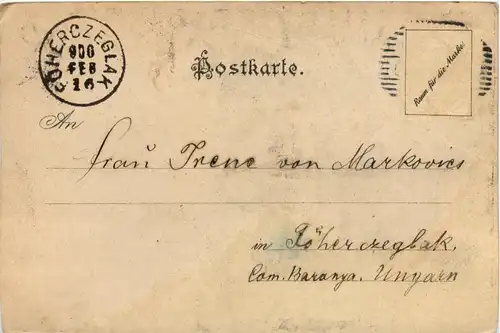 FŐHERCZEGLAK
900
FEB
16
Postkarte.
Raum für die Marke.
An
Frau Irene von Markovics
in Főherczeglak.
Com. Baranya. Ungarn